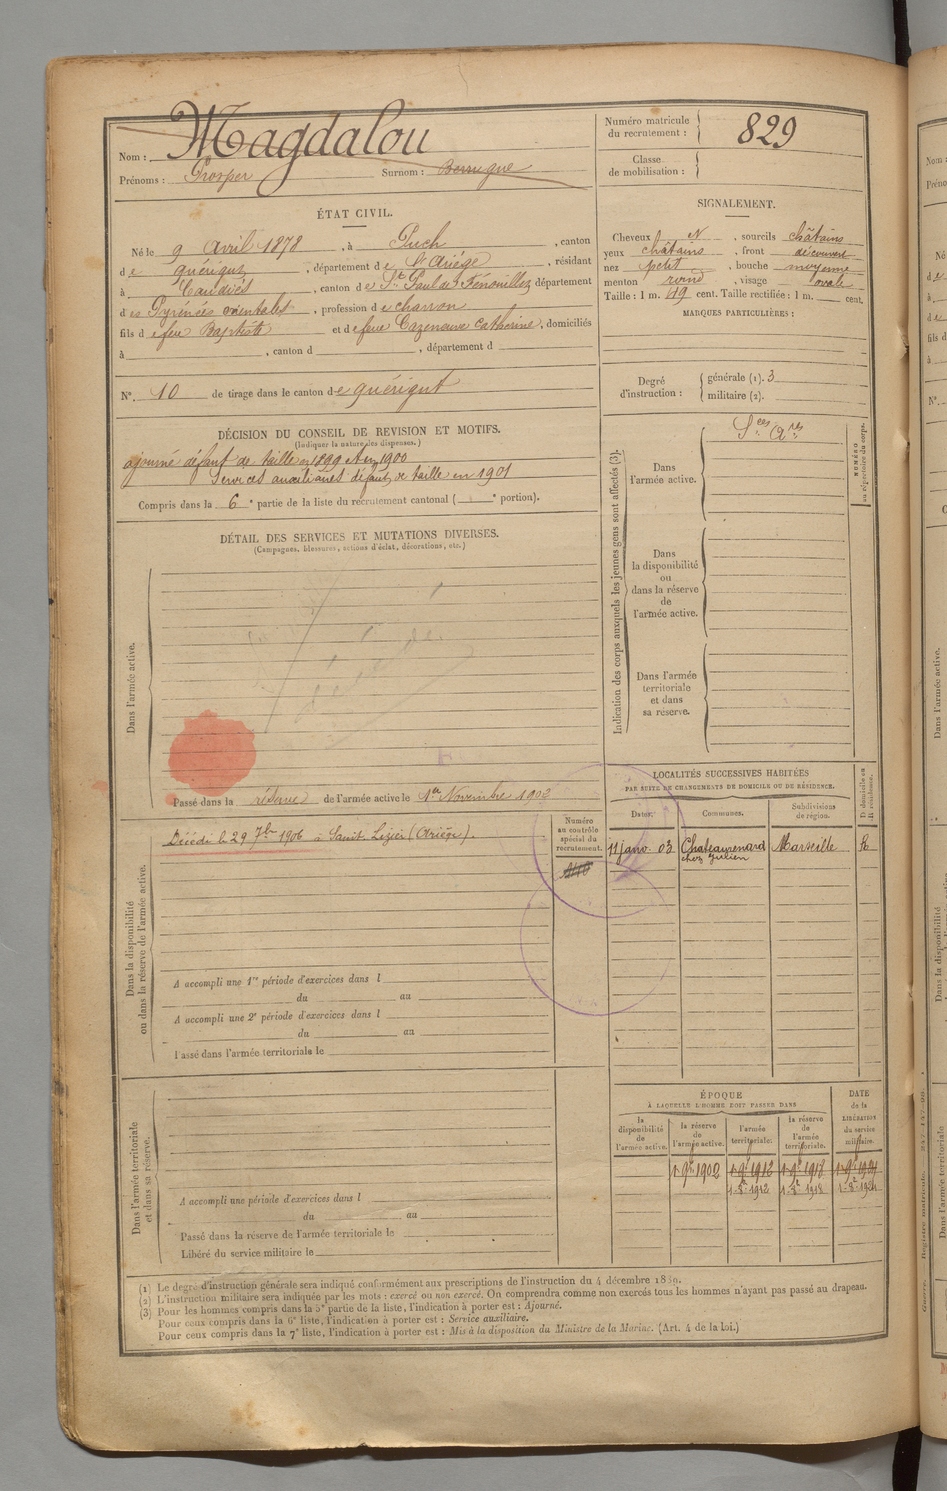 Magdalou
Nom :
Prénoms : Prosper Surnom :
Numéro matricule du recrutement : 829
Classe de mobilisation :
ÉTAT CIVIL.
Né le 9 Avril 1878, à Puch, canton
de quérigut, département de l'Ariège, résidant
à Caudiès, canton de St Paul de Fénouillez département
des Pyrénées orientales, profession de charron
fils de feu Baptiste et de feue Cazeneuve Catherine, domiciliés
à , canton d , département d
N° 10 de tirage dans le canton de quérigut
SIGNALEMENT.
Cheveux N, sourcils châtains
yeux châtains, front découvert
nez petit, bouche moyenne
menton rond, visage ovale
Taille : 1 m. 49 cent. Taille rectifiée : 1 m. cent.
MARQUES PARTICULIÈRES :
Degré d'instruction : générale (1). 3
militaire (2).
DÉCISION DU CONSEIL DE REVISION ET MOTIFS.
(Indiquer la nature des dispenses.)
ajourné défaut de taille en 1899 et en 1900
Services auxiliaires défaut de taille en 1901
Compris dans la 6e partie de la liste du recrutement cantonal ( e portion).
DÉTAIL DES SERVICES ET MUTATIONS DIVERSES.
(Campagnes, blessures, actions d'éclat, décorations, etc.)
Dans l'armée active.
Passé dans la réserve de l'armée active le 1er Novembre 1902
Indication des corps auxquels les jeunes gens sont affectés (3).
NUMÉRO au répertoire du corps.
Dans l'armée active. Sces Ares
Dans la disponibilité ou dans la réserve de l'armée active.
Dans l'armée territoriale et dans sa réserve.
Dans la disponibilité ou dans la réserve de l'armée active.
Décédé le 29 7bre 1906 à Saint Lizier (Ariège).
Numéro au contrôle spécial du recrutement.
A accompli une 1re période d'exercices dans l
du au
A accompli une 2e période d'exercices dans l
du au
Passé dans l'armée territoriale le
LOCALITÉS SUCCESSIVES HABITÉES
PAR SUITE DE CHANGEMENTS DE DOMICILE OU DE RÉSIDENCE.
D domicile ou R résidence.
Dates. Communes. Subdivisions de région.
11 janv. 03 Chateaurenard Marseille R
chez Julien
Dans l'armée territoriale et dans sa réserve.
A accompli une période d'exercices dans l
du au
Passé dans la réserve de l'armée territoriale le
Libéré du service militaire le
ÉPOQUE
À LAQUELLE L'HOMME DOIT PASSER DANS
DATE de la LIBÉRATION du service militaire.
la disponibilité de l'armée active. la réserve de l'armée active. l'armée territoriale. la réserve de l'armée territoriale.
1 9bre 1902 1 9bre 1912 1 9bre 1918
1 8bre 1912 1 8bre 1918
(1) Le degré d'instruction générale sera indiqué conformément aux prescriptions de l'instruction du 4 décembre 1889.
(2) L'instruction militaire sera indiquée par les mots : exercé ou non exercé. On comprendra comme non exercés tous les hommes n'ayant pas passé au drapeau.
(3) Pour les hommes compris dans la 5e partie de la liste, l'indication à porter est : Ajourné.
Pour ceux compris dans la 6e liste, l'indication à porter est : Service auxiliaire.
Pour ceux compris dans la 7e liste, l'indication à porter est : Mis à la disposition du Ministre de la Marine. (Art. 4 de la loi.)